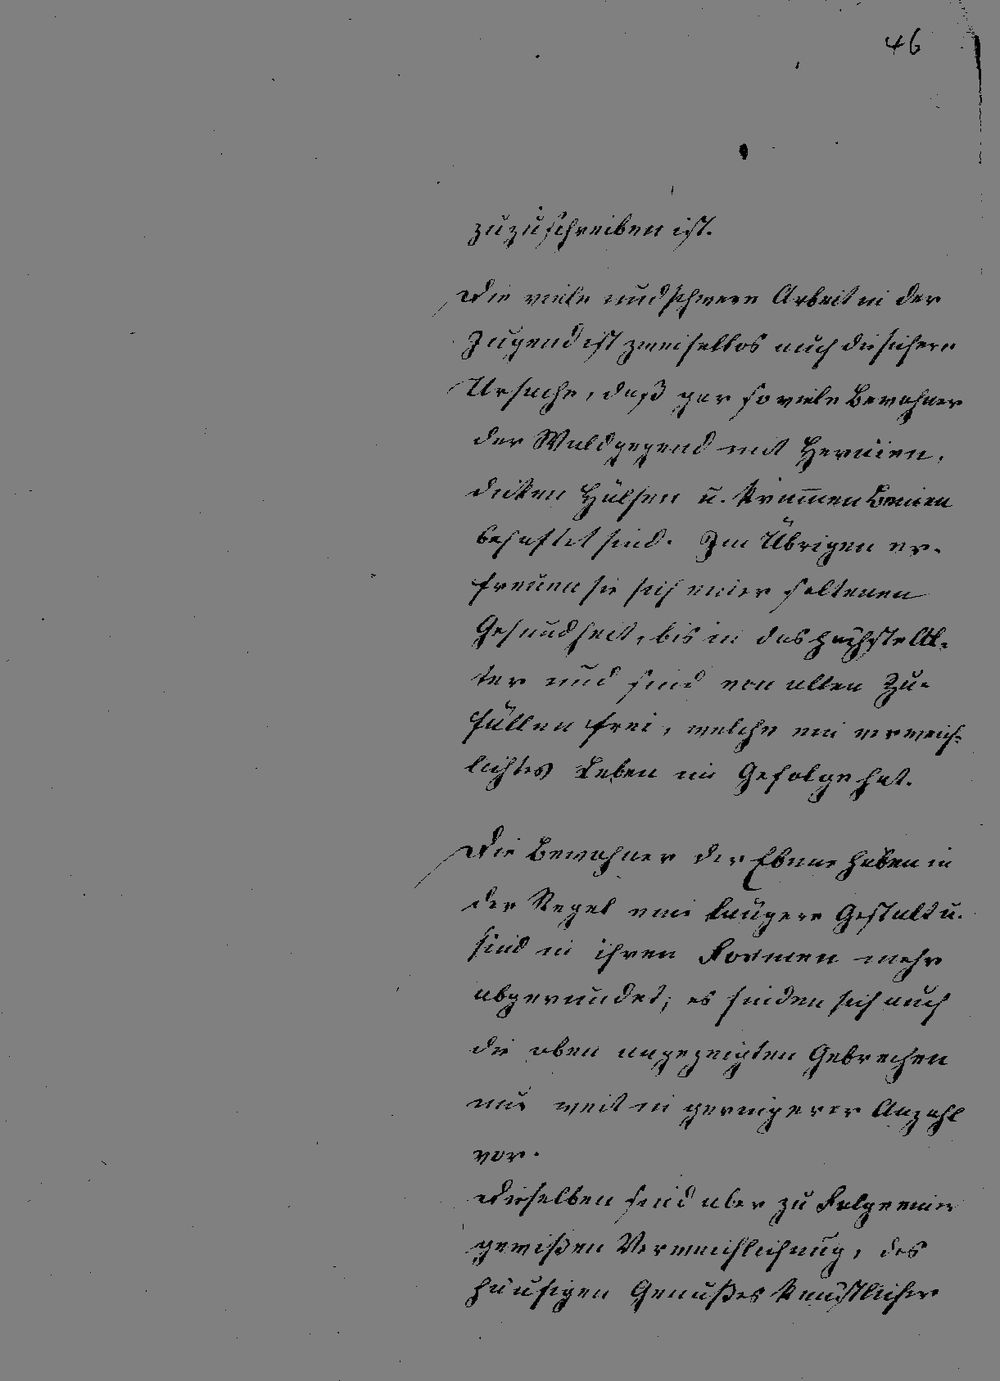 46
zuzuschreiben ist.
Die viele und schwere Arbeit in der
Jugend ist zweifellos auch die sichere
Ursache, daß gar so viele Bewohner
der Waldgegend mit Hernien,
dicken Hälsen u. krum̅en Beinen
behaftet sind. Im Übrigen er-
freuen sie sich einer seltenen
Gesundheit, bis in das höchste Al-
ter und sind von allen Zu-
fällen frei, welche ein verweich-
lichtes Leben im Gefolge hat.
Die Bewohner der Ebene haben in
der Regel eine längere Gestalt u.
sind in ihren Formen mehr
abgerundet; es finden sich auch
die oben angezeigten Gebrechen
nur weit in geringerer Anzahl
vor.
Dieselben sind aber zu Folge einer
gewißen Verweichlichung, des
häufigen Genußes künstlicher